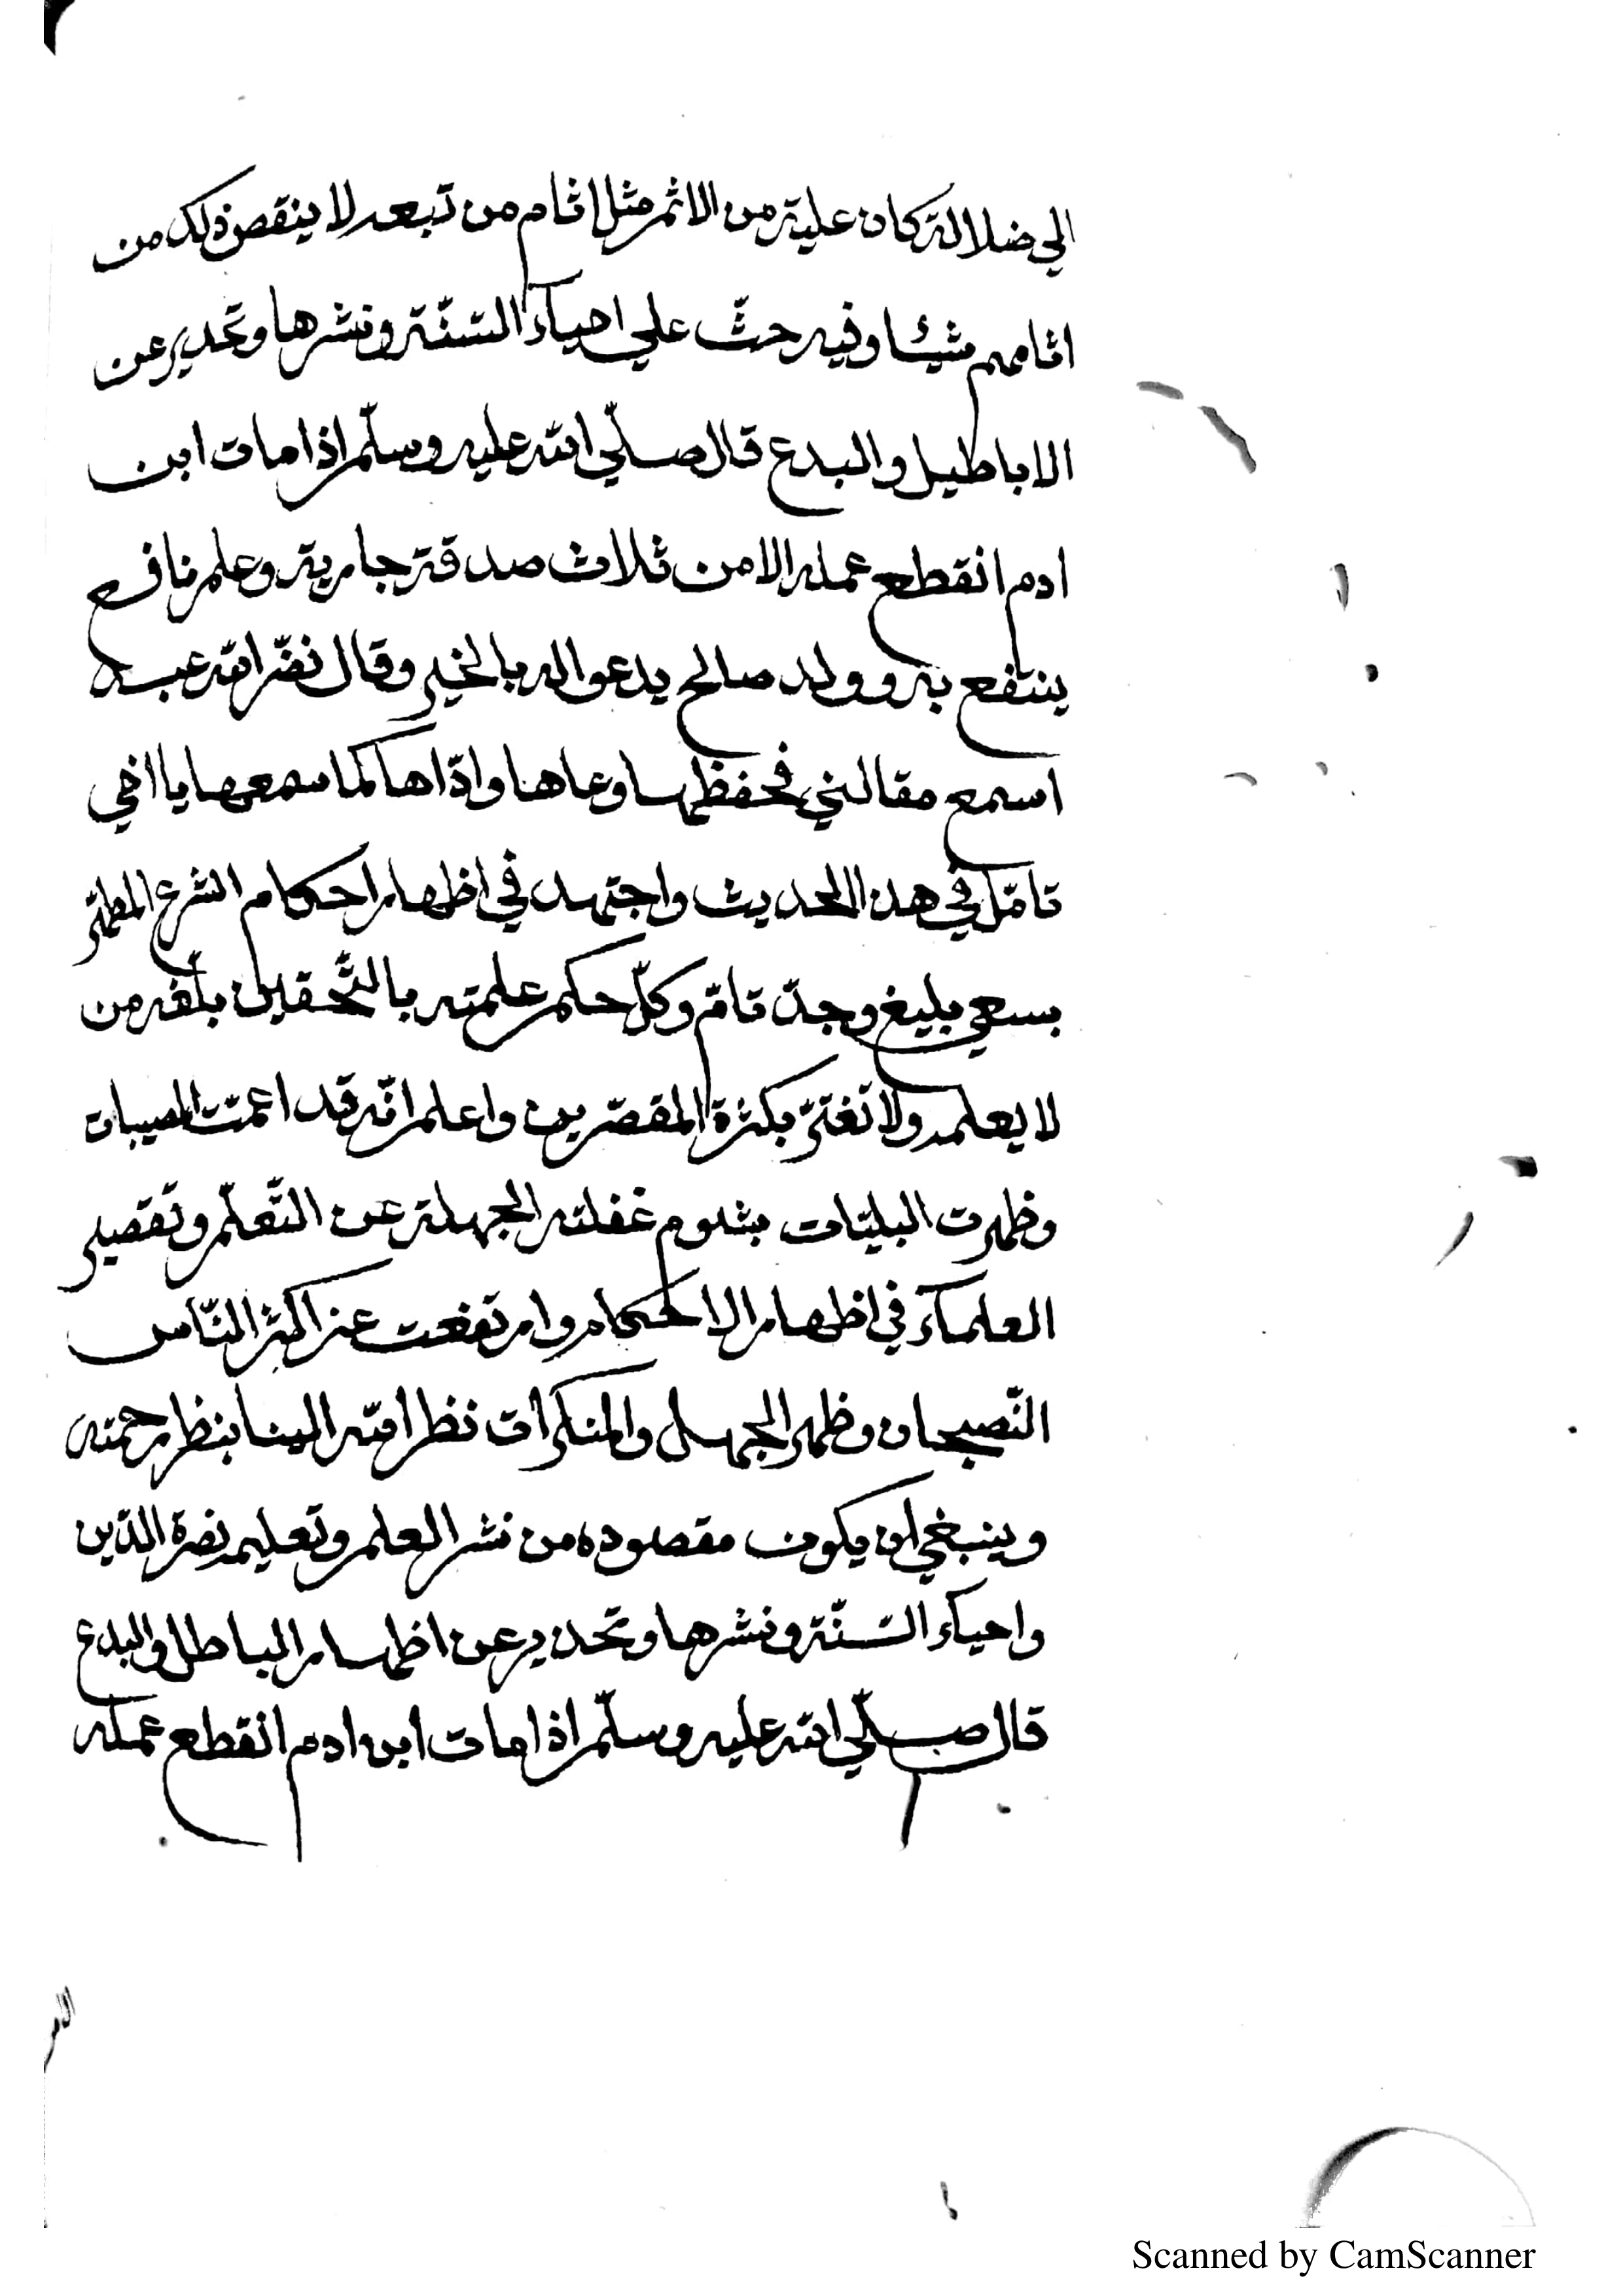 الي ضلالة كان عليه من الاثم مثل اثام من تبعه لا ينقص ذلك من
اثامهم شيئا وفيه حثّ علي احيآء السّنّة ونشرها وتحذير عن
الاباطيل والبدع قال صلّي الله عليه وسلّم اذا مات ابن
ادم انقطع عمله الا من ثلاث صدقة جارية وعلم نافع
ينتفع به وولد صالح يدعوا له بالخير وقال نضّر الله عبدا
اسمع مقالتي فحفظها وعاها وادّاها كما سمعها يا اخي
تامّل في هذا الحديث واجتهد في اظهار احكام الشرع المطهّر
بسعي بليغ وجدّ تامّ وكلّ حكم علمته بالتّحقيق بلّغه من
لا يعلمه ولا تغترّ بكثرة المقصّرين واعلم انّه قد اعمّت المصيبات
وظهرت البليّات بشوم غفلة الجهلة عن التّعلّم وتقصير
العلمآء في اظهار الاحكام وارتفعت عن اكثر النّاس
النّصيحات وظهر الجهل والمنكرات نظر الله الينا بنظر رحمته
وينبغي ان يكون مقصوده من نشر العلم وتعليمه نصرة الدّين
واحيآء السّنّة ونشرها وتحذير عن اظهار الباطل والبدع
قال صلّي الله عليه وسلّم اذا مات ابن ادم انقطع عمله
Scanned by CamScanner